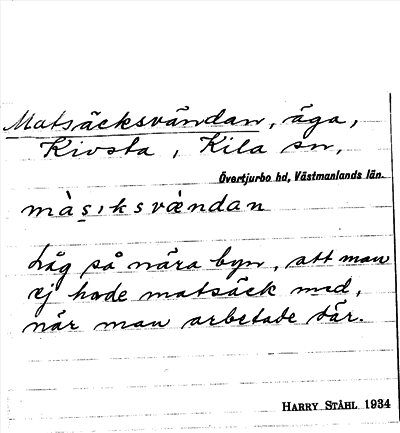 Matsäcksvändan, äga,
Kivsta, Kila sn,
Övertjurbo hd, Västmanlands län.
màs̱ıksvὰndan
Låg så nära byn, att man
ej hade matsäck med,
när man arbetade där.
HARRY STÅHL 1934